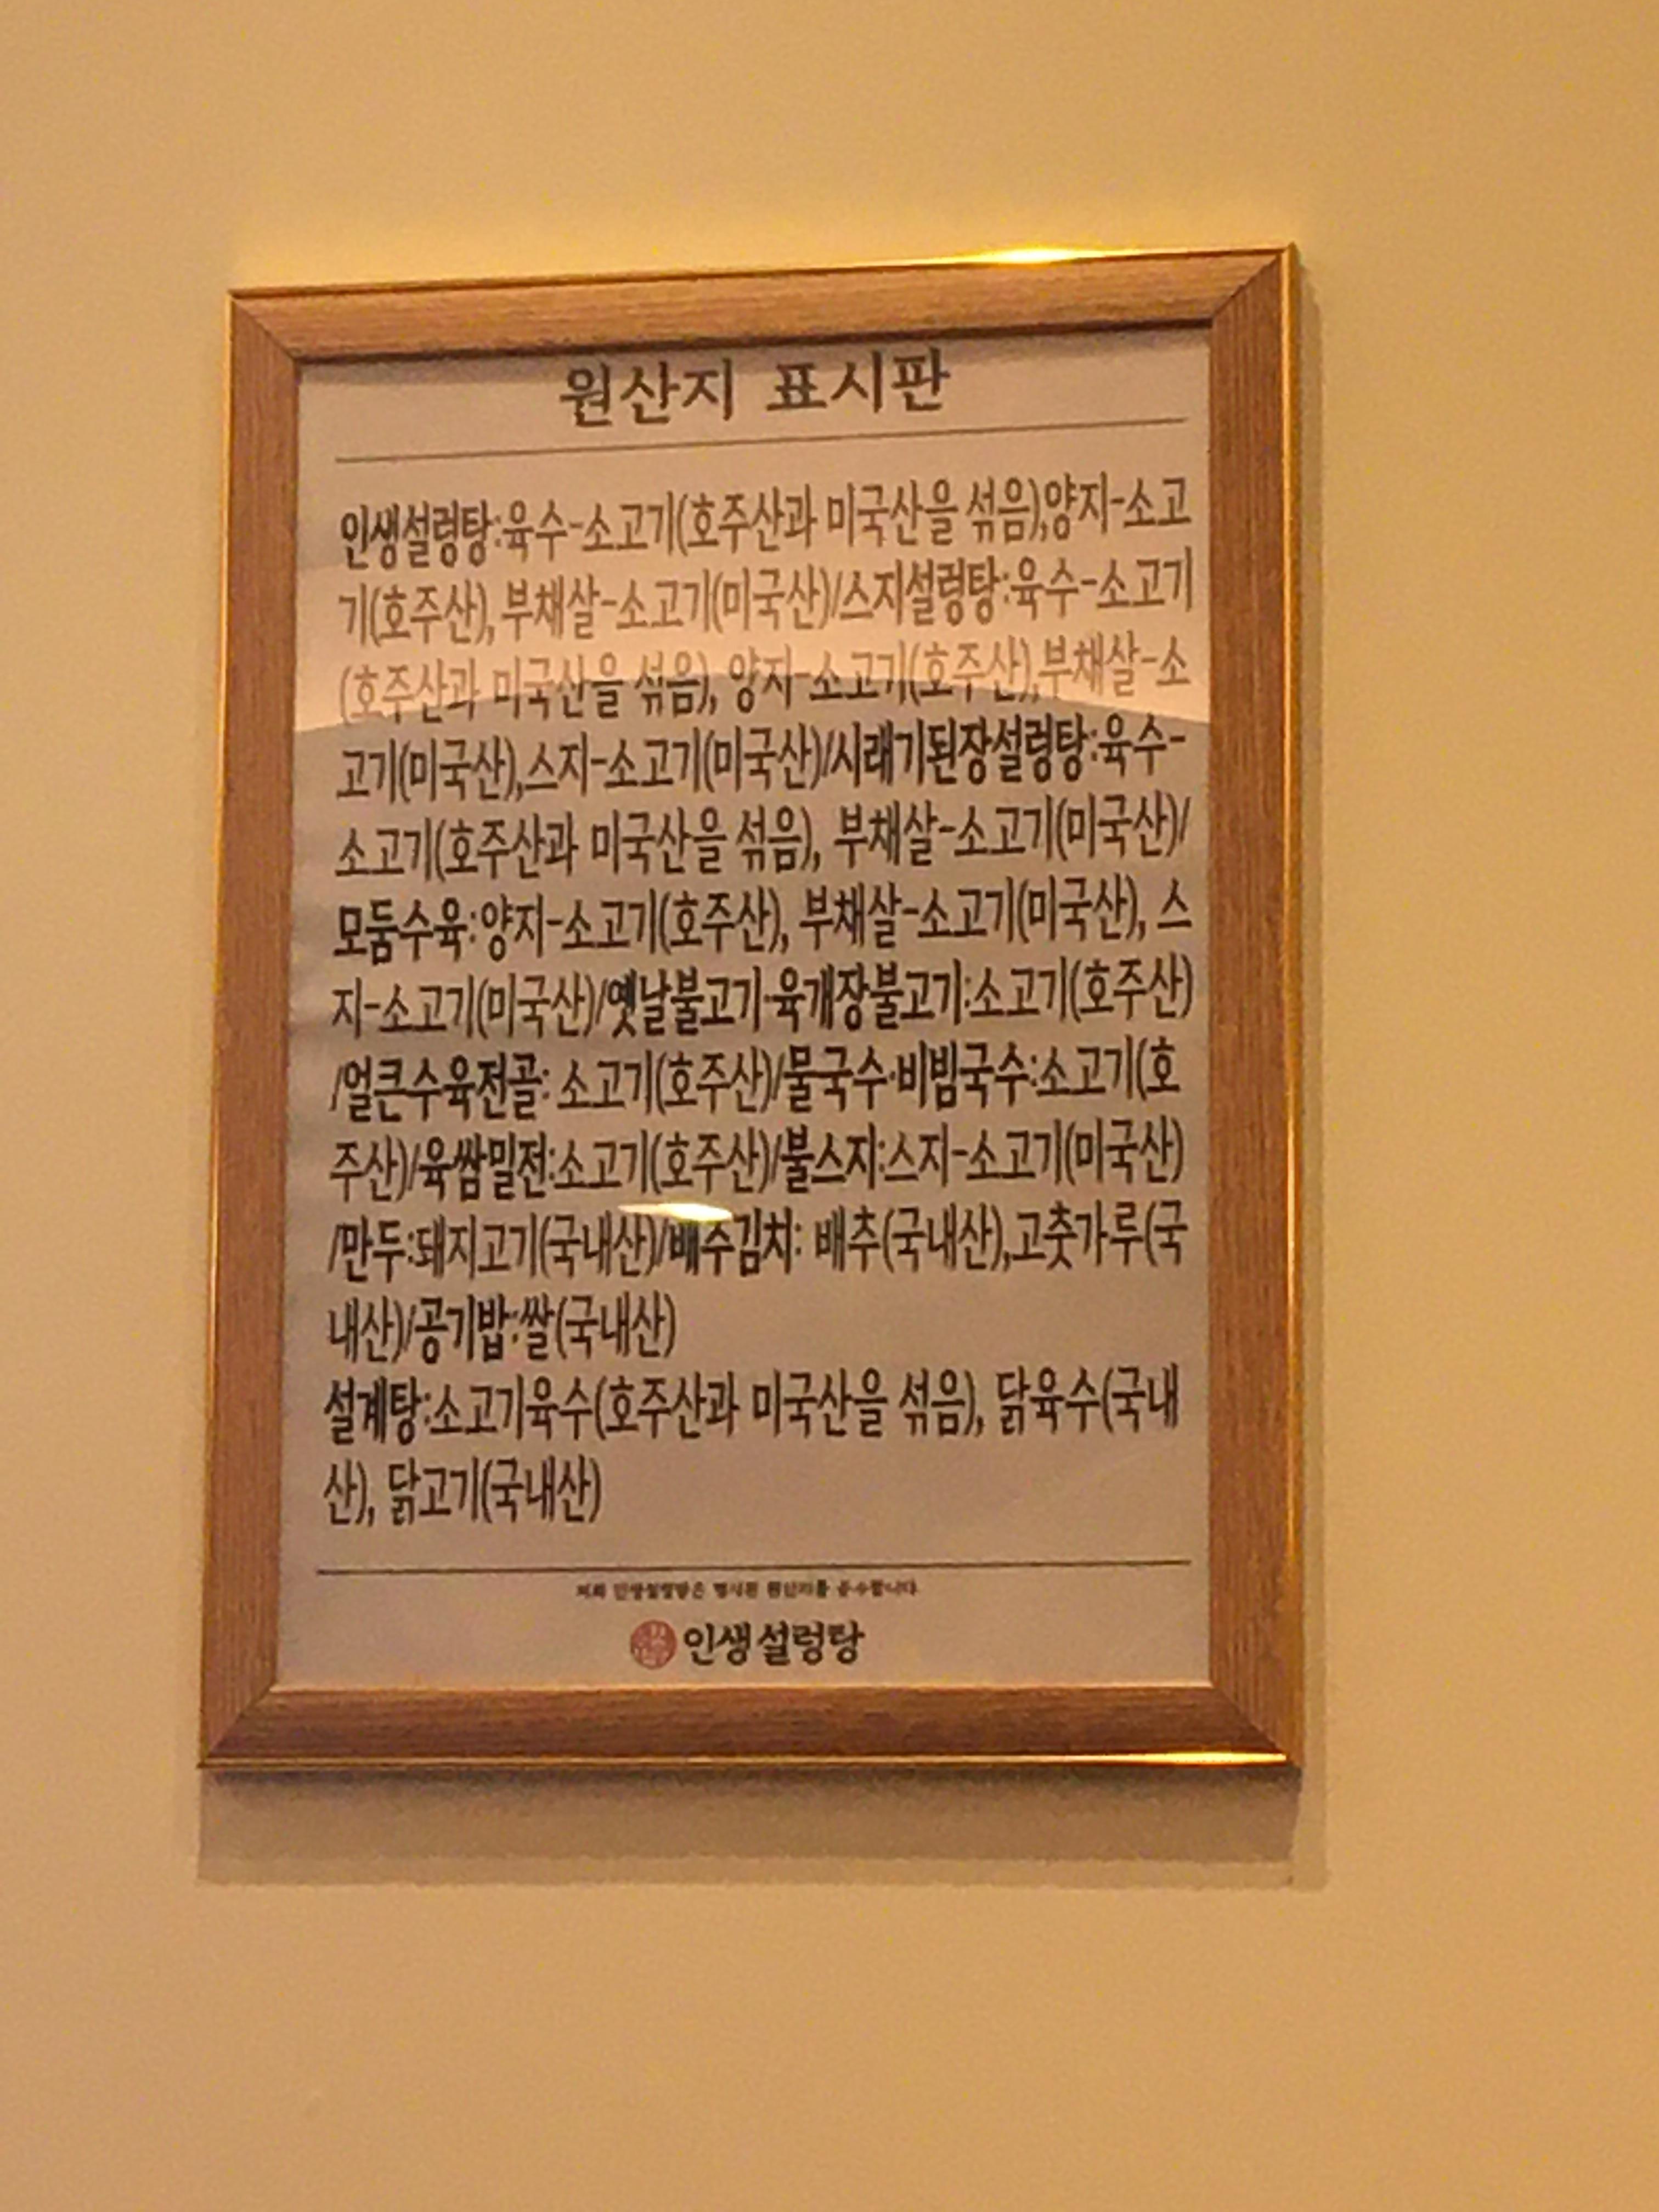 원산지 표시판
인생설렁탕:육수-소고기(호주산과 미국산을 섞음),양지-소고
기(호주산), 부채살-소고기(미국산)/스지설렁탕:육수-소고기
(호주산과 미국산을 섞음), 양지-소고기(호주산),부채살-소
고기(미국산),스지-소고기(미국산)/시래기된장설렁탕:육수-
소고기(호주산과 미국산을 섞음), 부채살-소고기(미국산)/
모둠수육:양지-소고기(호주산), 부채살-소고기(미국산), 스
지-소고기(미국산)/옛날불고기·육개장불고기:소고기(호주산)
/얼큰수육전골: 소고기(호주산)/물국수·비빔국수:소고기(호
주산)/육쌈밀전:소고기(호주산)/불스지:스지-소고기(미국산)
/만두:돼지고기(국내산)/배추김치: 배추(국내산),고춧가루(국
내산)/공기밥:쌀(국내산)
설계탕:소고기육수(호주산과 미국산을 섞음), 닭육수(국내
산), 닭고기(국내산)
저희 인생설렁탕은 명시된 원산지를 준수합니다.
인생설렁탕